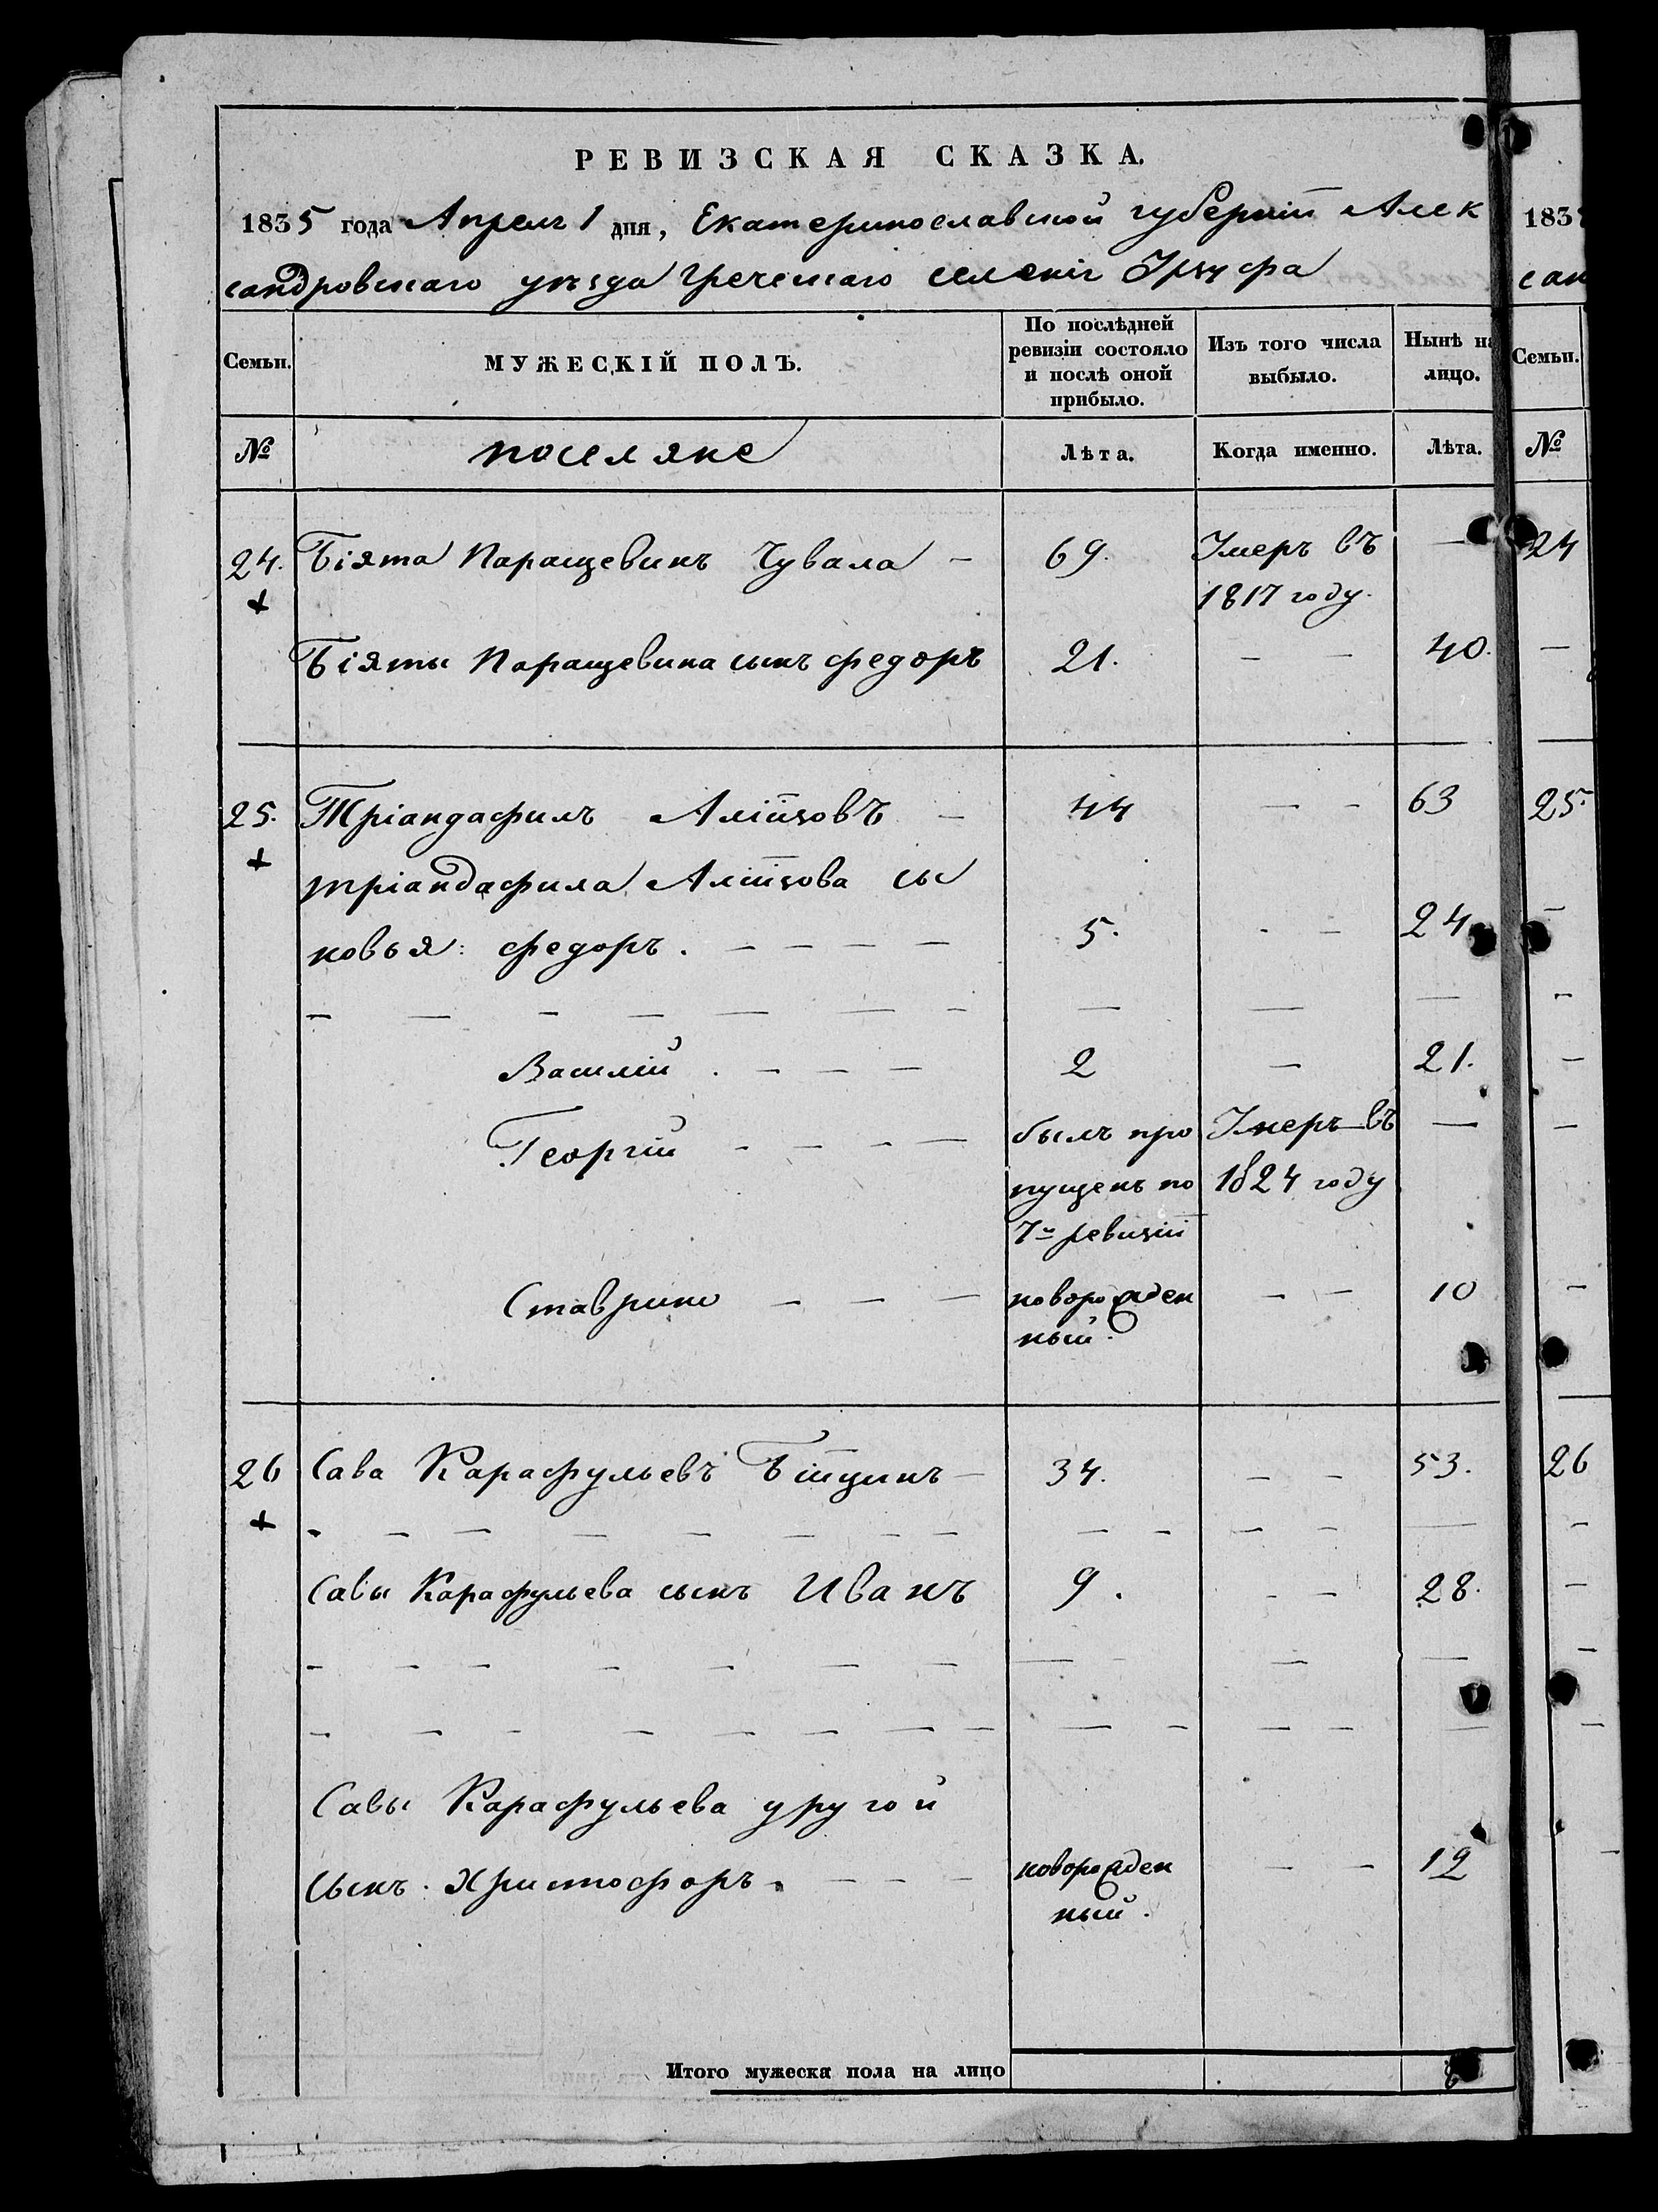 РЕВИЗСКАЯ СКАЗКА.
1835 года Апреля 1 дня, Екатеринославской губерніи Алек
сандровскаго уѣзда Греческаго селенія Урзуфа
Семьи.
МУЖЕСКІЙ ПОЛЪ.
По послѣдней
ревизіи состояло
и послѣ оной
прибыло.
Изъ того числа
выбыло.
Нынѣ на
лицо.
№ поселяне Лѣта. Когда именно. Лѣта.
24. Біята Паращевинъ Чувала — 69. Умеръ въ —
1817 году.
Біяты Паращевина сынъ Федоръ 21. — — 40.
25. Тріандафилъ Аліизовъ — 44 — — 63
тріандафила Аліизова сы
новья: Федоръ. — — — — 5. — — 24
— — — — — — — — — —
Василій . — — — 2 — 21.
Георгій — — — — былъ про Умеръ въ —
пущенъ по 1824 году
7й ревизіи
Ставрино — — — новорожден — — 10
ный.
26 Сава Карафульевъ Біицинъ — 34. — — 53.
— — — — — — — — — — — — —
Савы Карафульева сынъ Иванъ 9. — — 28.
— — — — — — — — — —
— — — — — — — — — — — — —
Савы Карафульева другой
сынъ. Христофоръ. — — — новорожден — — 12
ный.
Итого мужеска пола на лицо
1835
сан
Семьи.
№
24
25.
26